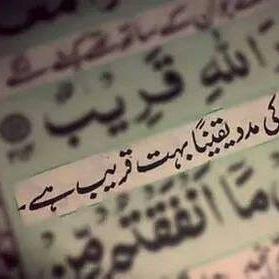 اللّٰهِ قَرِيْبٌ
کی مدد یقیناً بہت قریب ہے۔
مَاۤ اَنْفَقْتُمْ مِّنْ